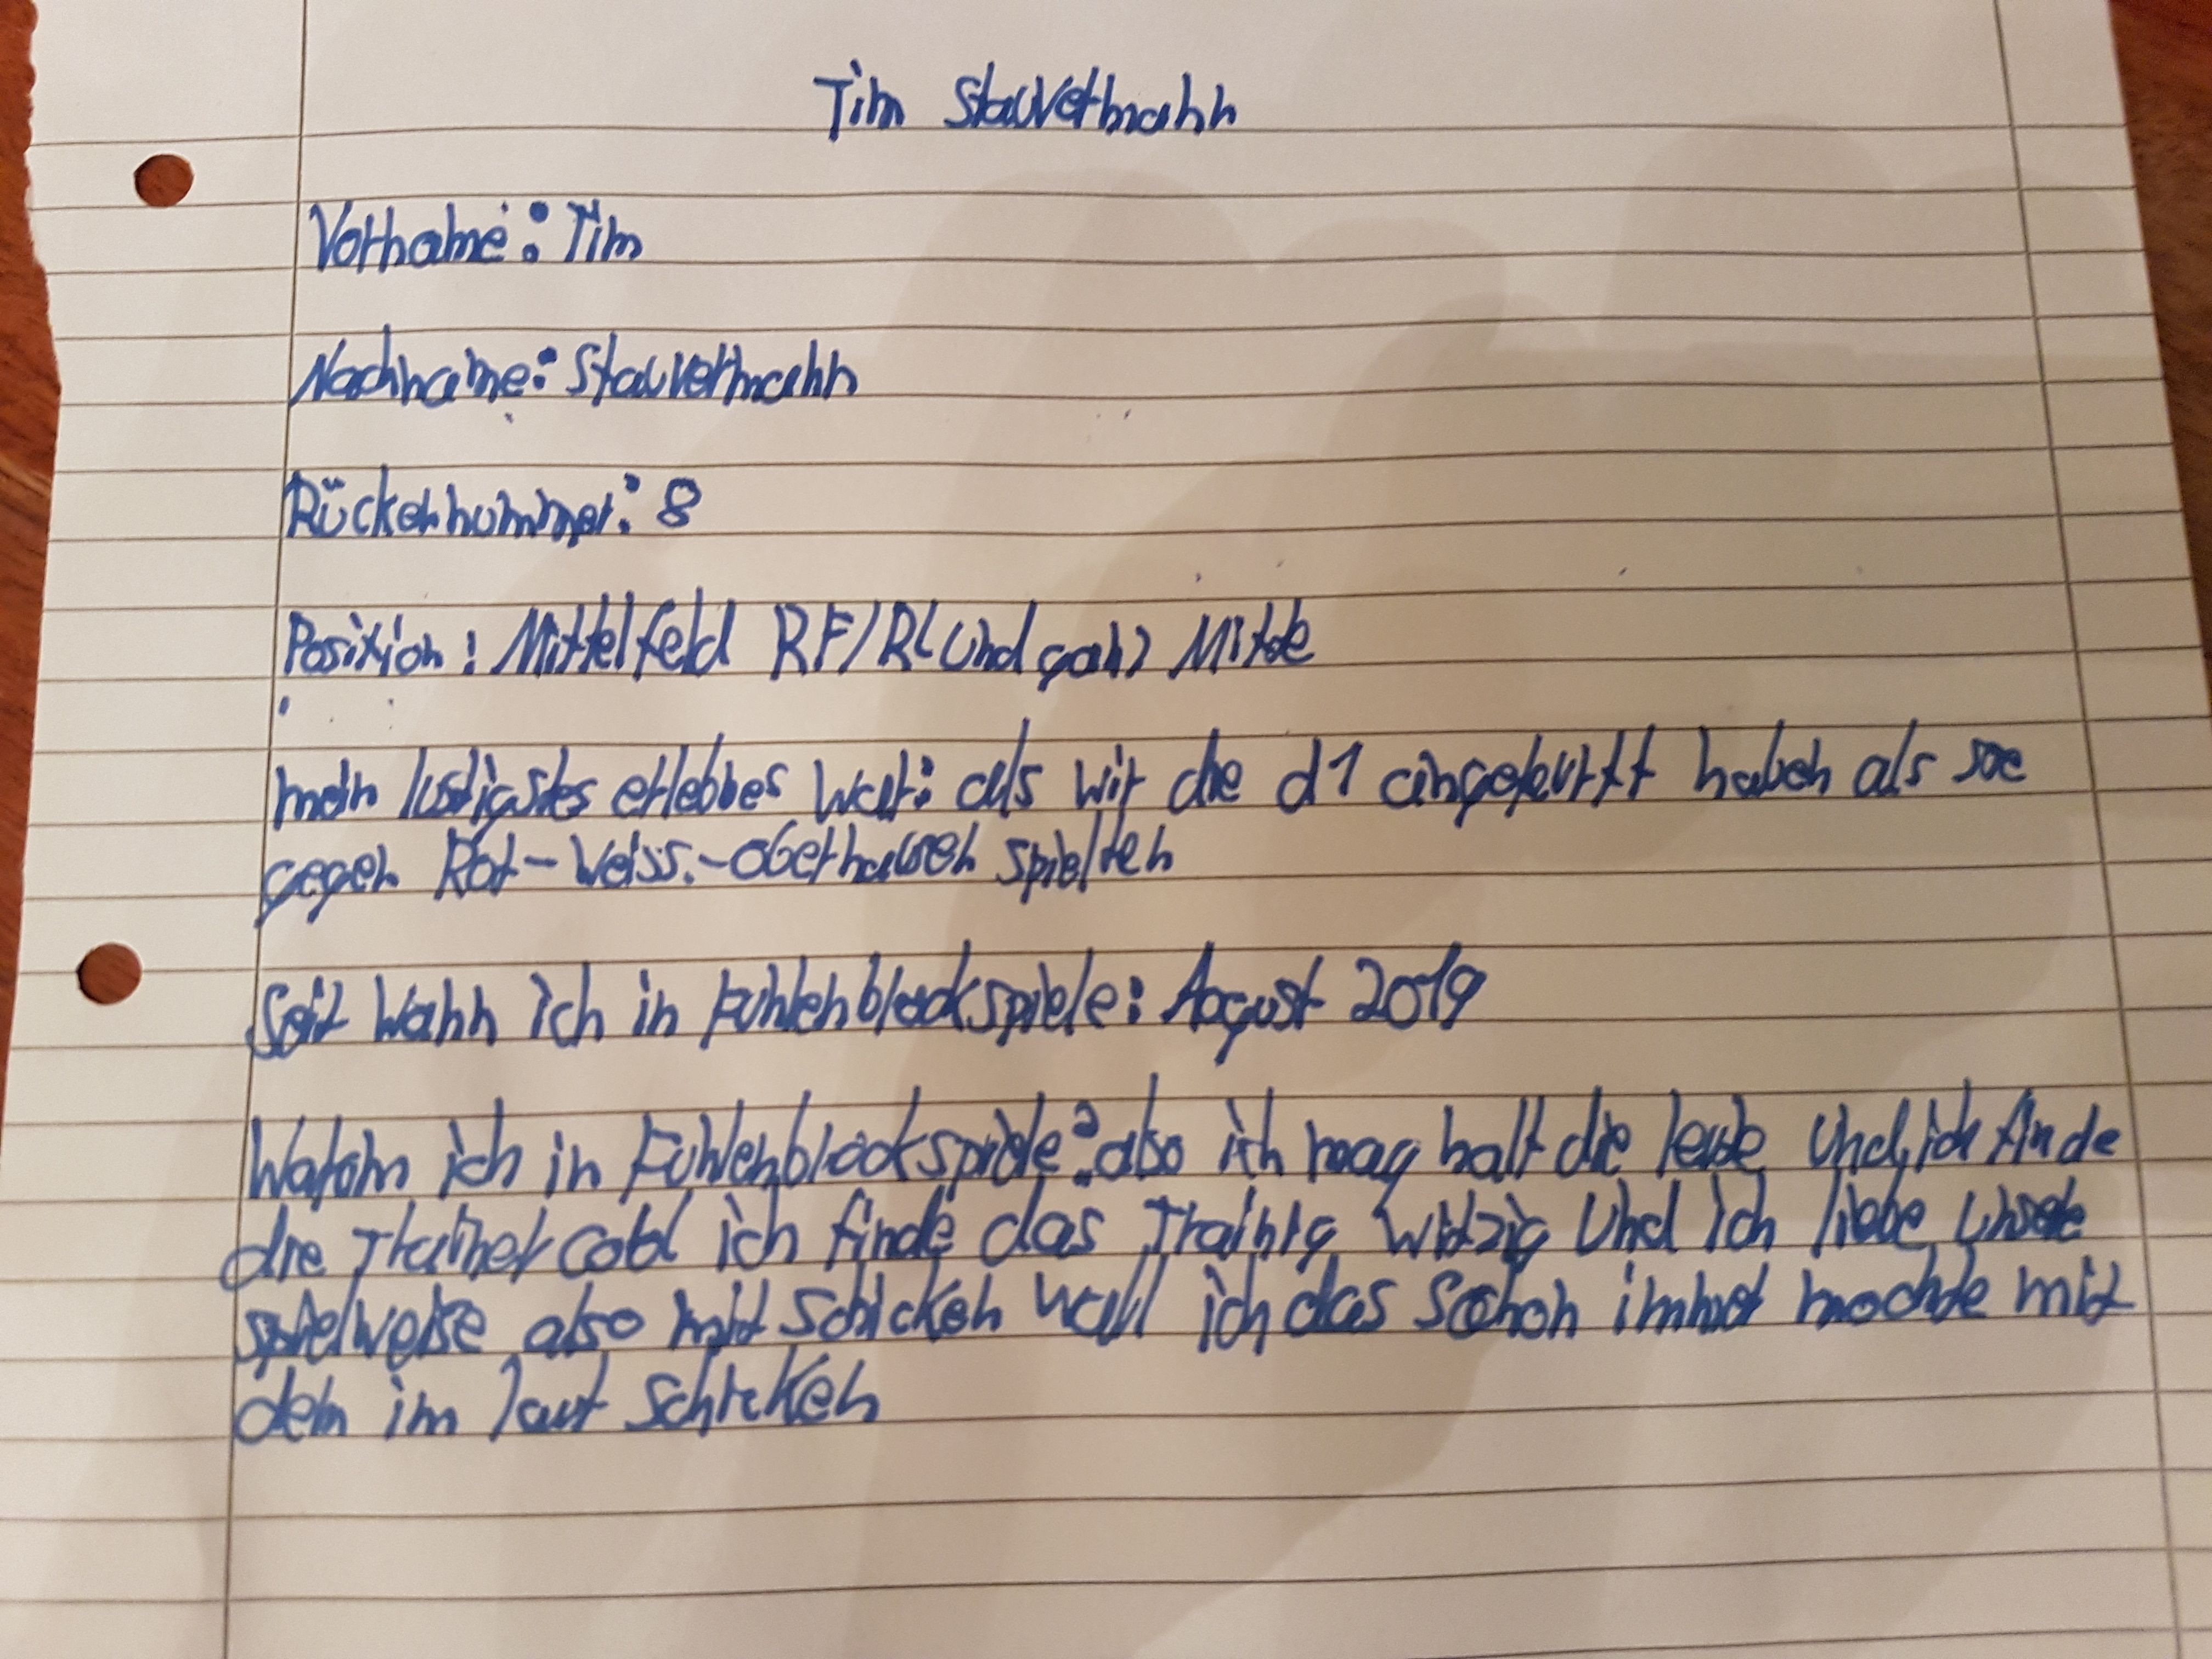 Tim Stauvermann
Vorname: Tim
Nachname: Stauvermann
Rückennummer: 8
Position: Mittelfeld RF/RL und ganz Mitte
mein lustigstes erlebbes war: als wir die d1 angefeurtt haben als sie
gegen Rot-Weiss-Oberhausen spielten
Seit wann ich in Fuhlenbrock spiele: August 2019
Warum ich in Fuhlenbrock spiele? also ich mag halt die leute und ich finde
die Trainer cool ich finde das Trainig witzig und ich liebe unsere
spielweise also mit schicken weil ich das schon immer mochte mit
dem im lauf schicken